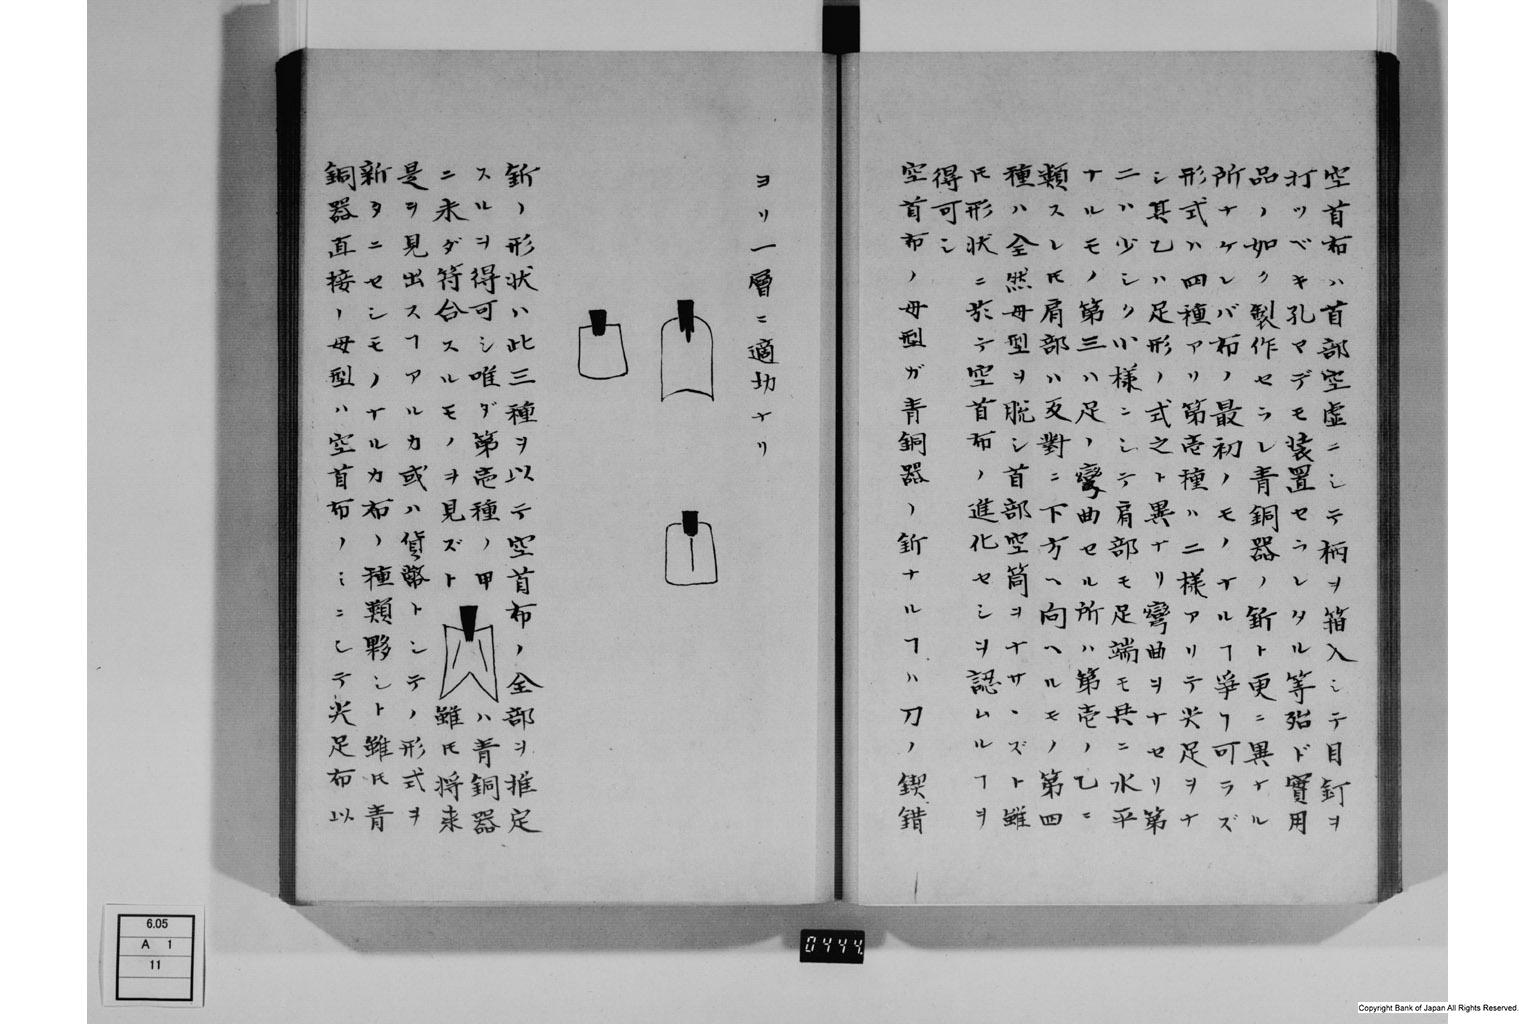 空首布ハ首部空虚ニシテ柄ヲ箝入シテ目釘ヲ
打ツベキ孔マデモ装置セラレタル等殆ド實用
品ノ如ク製作セラレ青銅器ノ釿ト更ニ異ナル
所ナケレバ布ノ最初ノモノナルヿ爭フ可ラズ
形式ハ四種アリ第壱種ハ二様アリテ尖足ヲナ
シ其乙ハ足形ノ式之ト異ナリ彎曲ヲナセリ第
二ハ少シク小様ニシテ肩部モ足端モ共ニ水平
ナルモノ第三ハ足ノ彎曲セル所ハ第壱ノ乙ニ
類スレ𪜈肩部ハ反對ニ下方ヘ向ヘルモノ第四
種ハ全然母型ヲ脱シ首部空筒ヲナサヽズト雖
𪜈形状ニ於テ空首布ノ進化セシヲ認ムルヿヲ
得可シ
空首布ノ母型ガ青銅器ノ釿ナルヿハ刀ノ鍥錯
ヨリ一層ニ適切ナリ
釿ノ形状ハ此三種ヲ以テ空首布ノ全部ヲ推定
スルヲ得可シ唯ダ第壱種ノ甲ハ青銅器
ニ未ダ符合スルモノヲ見ズト雖𪜈将来
是ヲ見出スヿアルカ或ハ貨幣トシテノ形式ヲ
新タニセシモノナルカ布ノ種類夥シト雖𪜈青
銅器直接ノ母型ハ空首布ノミニシテ尖足布以
6.05
A 1
11
0444
Copyright Bank of Japan All Rights Reserved.